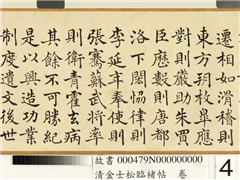 遷相如滑稽則
東方朔枚皋應
對則嚴助朱買
臣歷數則唐都
洛下閎恊律則
李延年奉使則
張騫蘇武將率
則衛青霍去病
其餘不可勝紀
是以興造功業
制度遺文後世
故書 000479N000000000
清金士松臨褚帖 卷
4